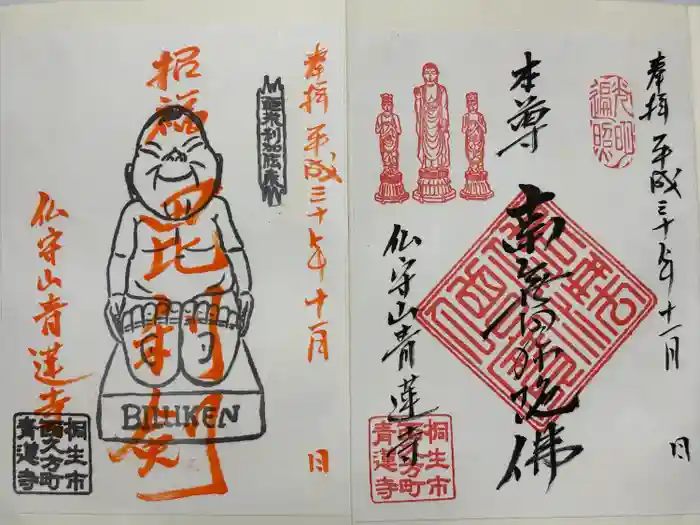 奉拝 平成三十年十一月 日
招福 毘利剣
BILLIKEN
仏守山青蓮寺
桐生市
西久方町
青蓮寺
奉拝 平成三十年十一月 日
光明
遍照
本尊
南無阿弥陀佛
仏守山青蓮寺
桐生市
西久方町
青蓮寺